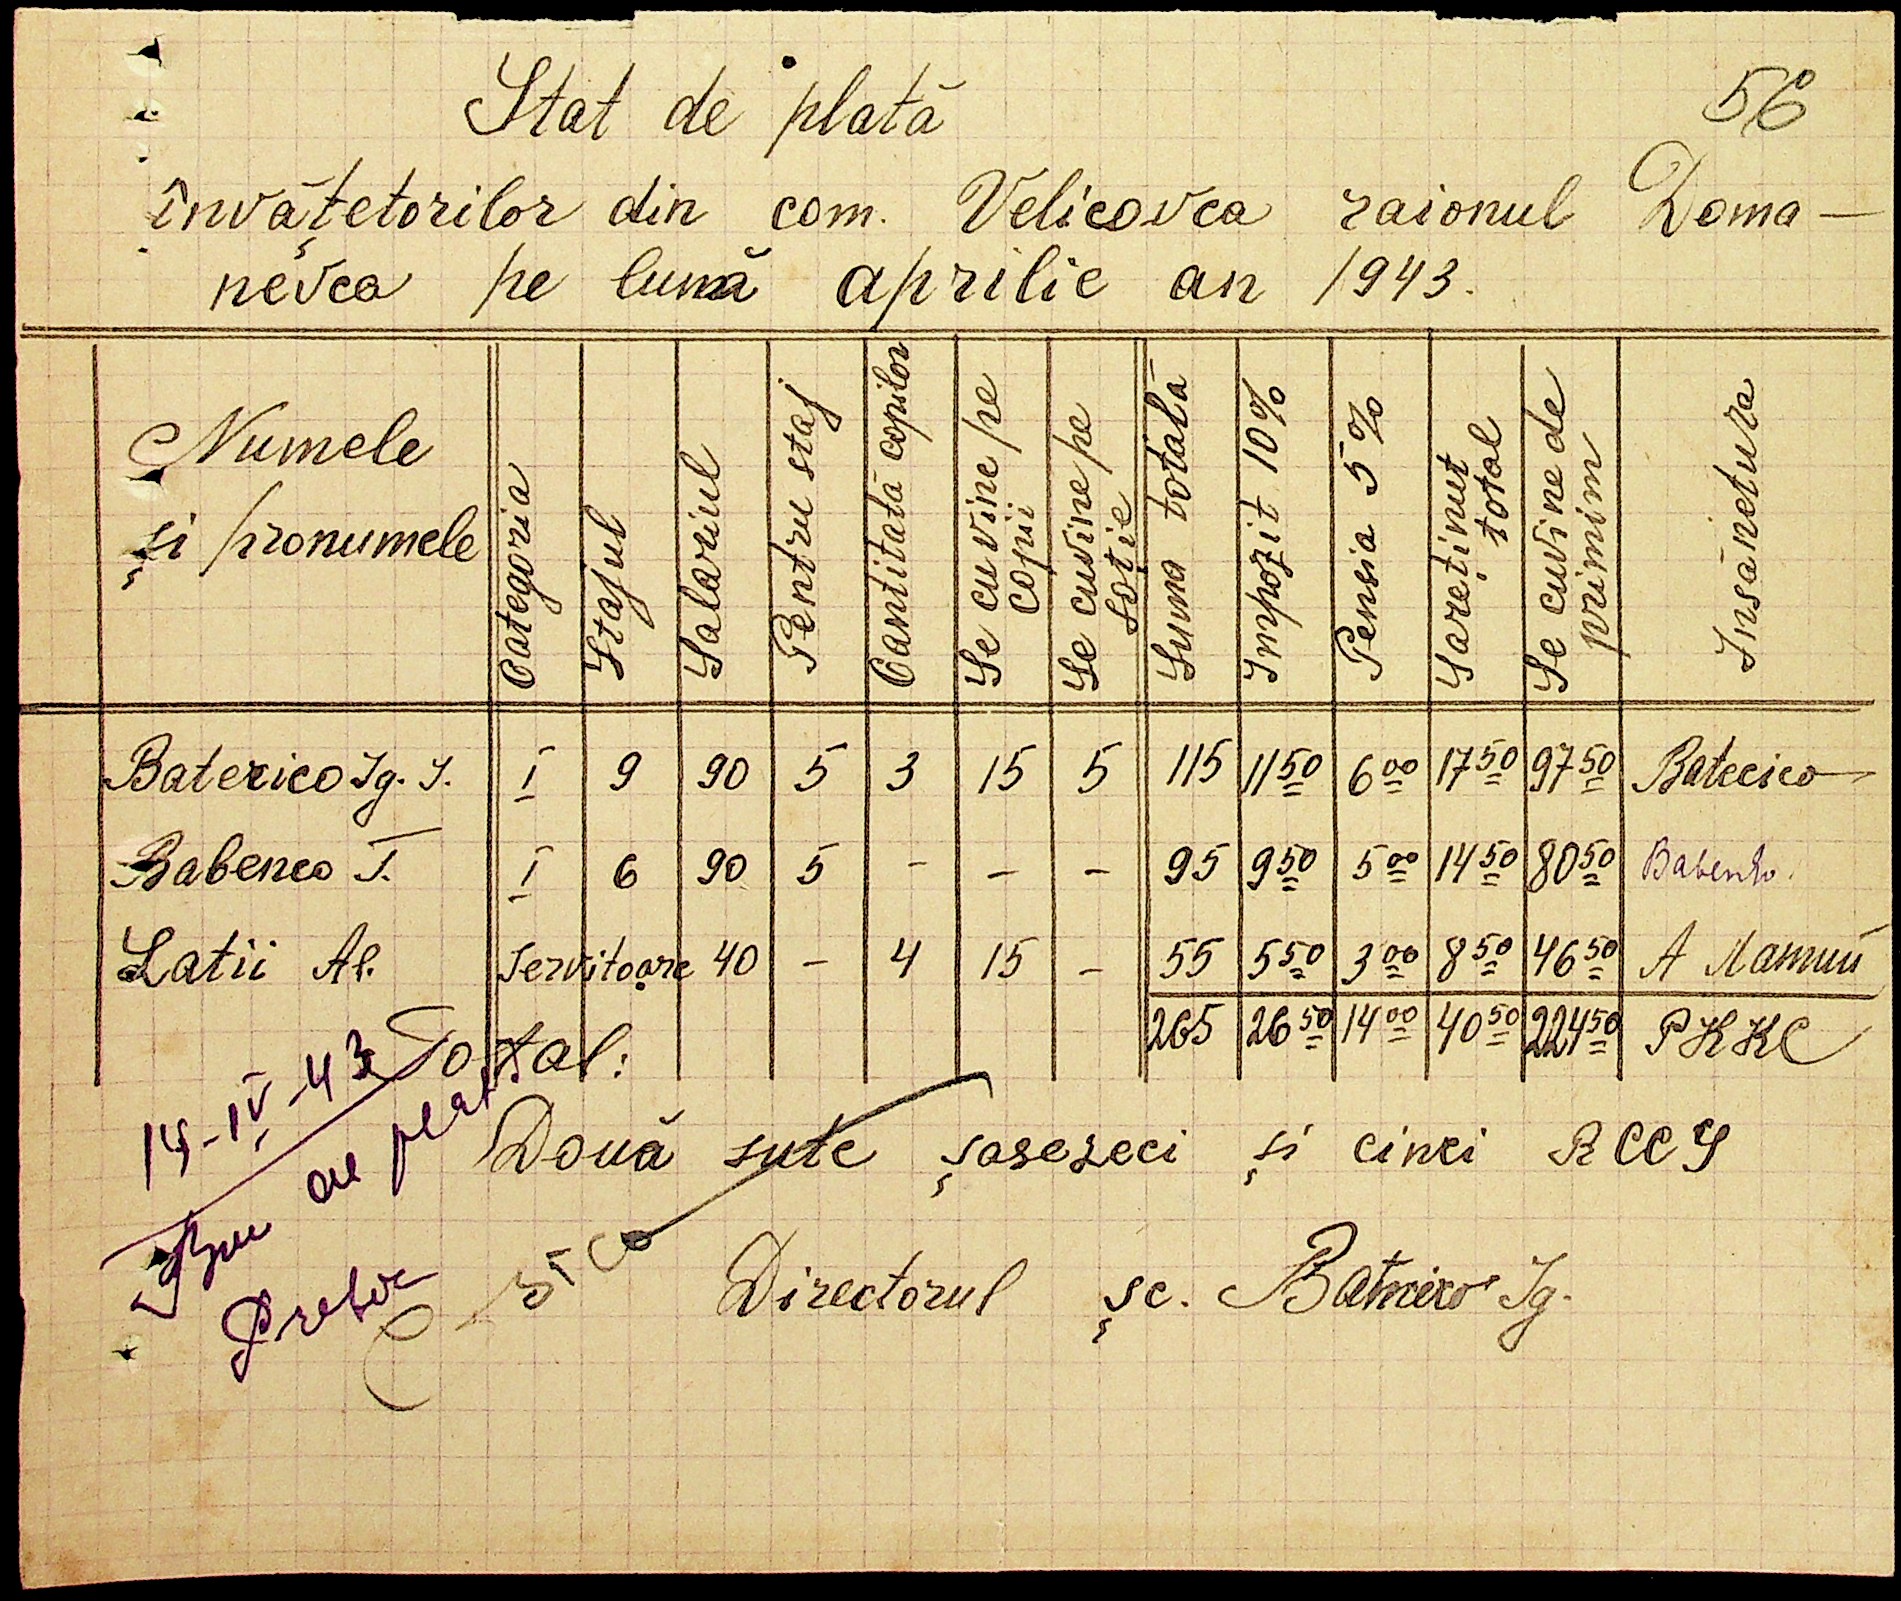 56
Stat de plată
învățetorilor din com. Velicovca raionul Doma-
nevca pe lună aprilie an 1943.
Numele și pronumele | Categoria | Stajul | Salariul | Pentru staj | Cantitată copiilor | Se cuvine pe copii | Se cuvine pe soție | Suma totală | Impozit 10% | Pensia 5% | Sareținut total | Se cuvine de primim | Insănetura
Baterico Ig. I. | I | 9 | 90 | 5 | 3 | 15 | 5 | 115 | 11 50 | 6 00 | 17 50 | 97 50 | Baterico
Babenco T. | I | 6 | 90 | 5 | - | - | - | 95 | 9 50 | 5 00 | 14 50 | 80 50 | Babenko
Latii Al. | Servitoare | 40 | - | 4 | 15 | - | 55 | 5 50 | 3 00 | 8 50 | 46 50 | А
Total: | 265 | 26 50 | 14 00 | 40 50 | 224 50 | РККС
Două sute șasezeci și cinci RCCS
14-IV-43
Bun de plat
Pretor
Directorul șc. Baterico Ig.